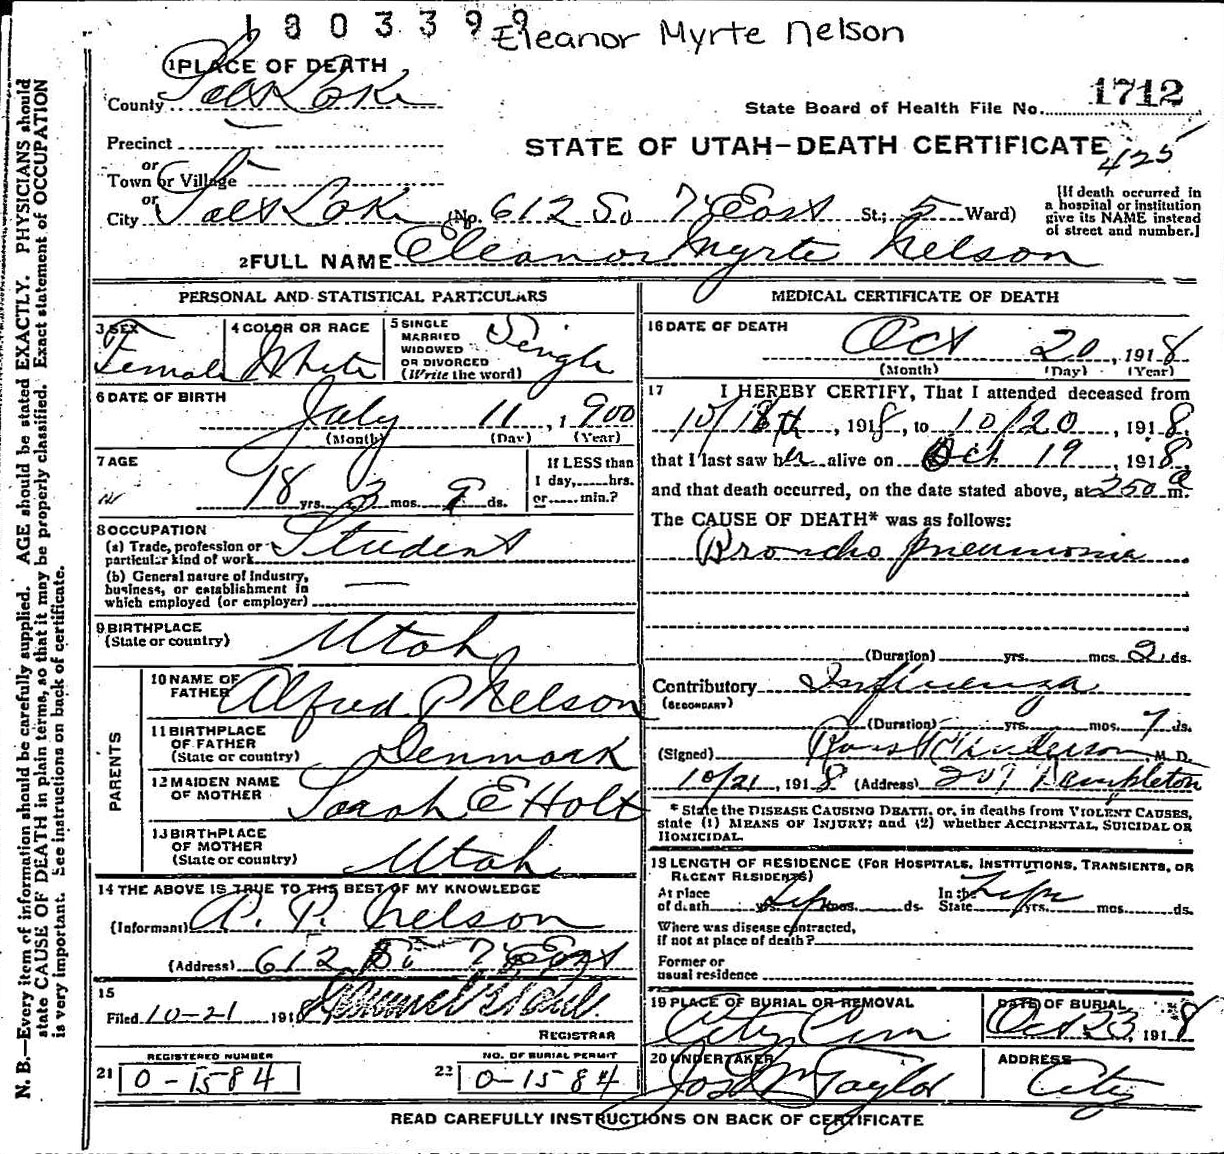 1803399
Eleanor Myrte Nelson
1 PLACE OF DEATH
County Salt Lake
State Board of Health File No. 1712
Precinct
STATE OF UTAH—DEATH CERTIFICATE
425
or
Town or Village
or
City Salt Lake (No. 612 So 7 East St.; 5 Ward)
[If death occurred in
a hospital or institution
give its NAME instead
of street and number.]
2 FULL NAME Eleanor Myrte Nelson
PERSONAL AND STATISTICAL PARTICULARS
3 SEX
Female
4 COLOR OR RACE
White
5 SINGLE
MARRIED
WIDOWED
OR DIVORCED
(Write the word)
Single
6 DATE OF BIRTH
July 11, 1900
(Month) (Day) (Year)
7 AGE
18 yrs. 3 mos. 9 ds.
If LESS than
1 day, hrs.
or min.?
8 OCCUPATION
(a) Trade, profession or
particular kind of work Student
(b) General nature of Industry,
business, or establishment in
which employed (or employer)
9 BIRTHPLACE
(State or country) Utah
PARENTS
10 NAME OF
FATHER Alfred P Nelson
11 BIRTHPLACE
OF FATHER
(State or country) Denmark
12 MAIDEN NAME
OF MOTHER Sarah E Holt
13 BIRTHPLACE
OF MOTHER
(State or country) Utah
14 THE ABOVE IS TRUE TO THE BEST OF MY KNOWLEDGE
(Informant) A. P. Nelson
(Address) 612 So 7 East
15
Filed 10-21 1918
REGISTRAR
REGISTERED NUMBER
21 0-1584
NO. OF BURIAL PERMIT
22 0-1584
MEDICAL CERTIFICATE OF DEATH
16 DATE OF DEATH
Oct 20, 1918
(Month) (Day) (Year)
17 I HEREBY CERTIFY, That I attended deceased from
10/18th, 1918, to 10/20, 1918,
that I last saw her alive on Oct 19, 1918,
and that death occurred, on the date stated above, at 250 a m.
The CAUSE OF DEATH* was as follows:
Broncho pneumonia
(Duration) yrs. mos. 2 ds.
Contributory Influenza
(SECONDARY)
(Duration) yrs. mos. 7 ds.
(Signed) Anderson M. D.
10/21, 1918 (Address) 207 Templeton
*State the DISEASE CAUSING DEATH, or, in deaths from VIOLENT CAUSES,
state (1) MEANS OF INJURY; and (2) whether ACCIDENTAL, SUICIDAL OR
HOMICIDAL.
18 LENGTH OF RESIDENCE (FOR HOSPITALS, INSTITUTIONS, TRANSIENTS, OR
RECENT RESIDENTS)
At place
of death yrs. Life mos. ds.
In the
State Life yrs. mos. ds.
Where was disease contracted,
if not at place of death?
Former or
usual residence
19 PLACE OF BURIAL OR REMOVAL
City Cem
DATE OF BURIAL
Oct 23, 1918
20 UNDERTAKER
Jos Wm Taylor
ADDRESS
City
READ CAREFULLY INSTRUCTIONS ON BACK OF CERTIFICATE
N. B.—Every item of information should be carefully supplied. AGE should be stated EXACTLY. PHYSICIANS should
state CAUSE OF DEATH in plain terms, so that it may be properly classified. Exact statement of OCCUPATION
is very important. See instructions on back of certificate.